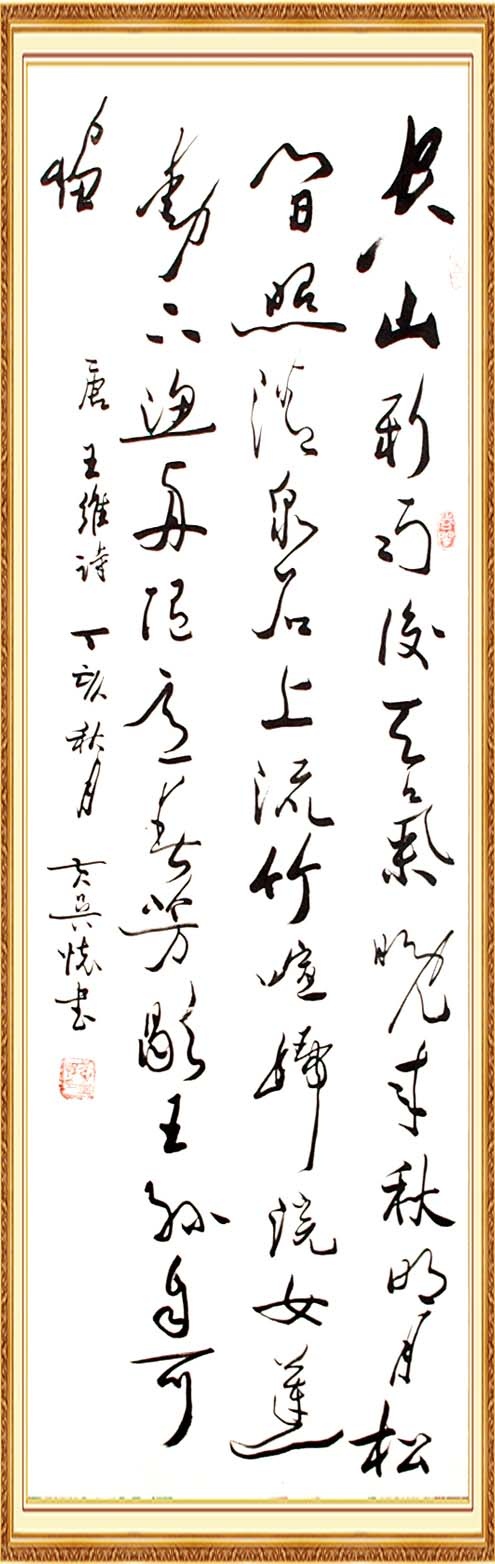 空山新雨後天氣晚来秋明月松
間照清泉石上流竹喧歸浣女蓮
動下漁舟随意春芳歇王孫自可
留
唐王維詩丁亥秋月書